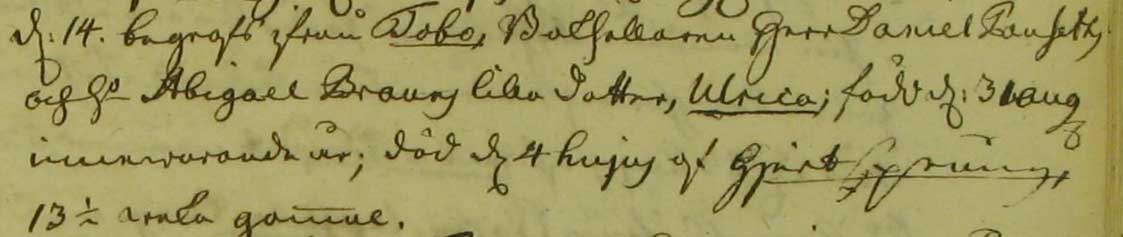 d: 14. begrofs ifrån Tobo, Bokhållaren Herr Daniel Tausets
och Hr Abigael Brauns lilla dotter, Ulrica; född d: 31 aug
innewarande år; död d 4 hujus af Hjertsprung,
13 ½ weka gammal.